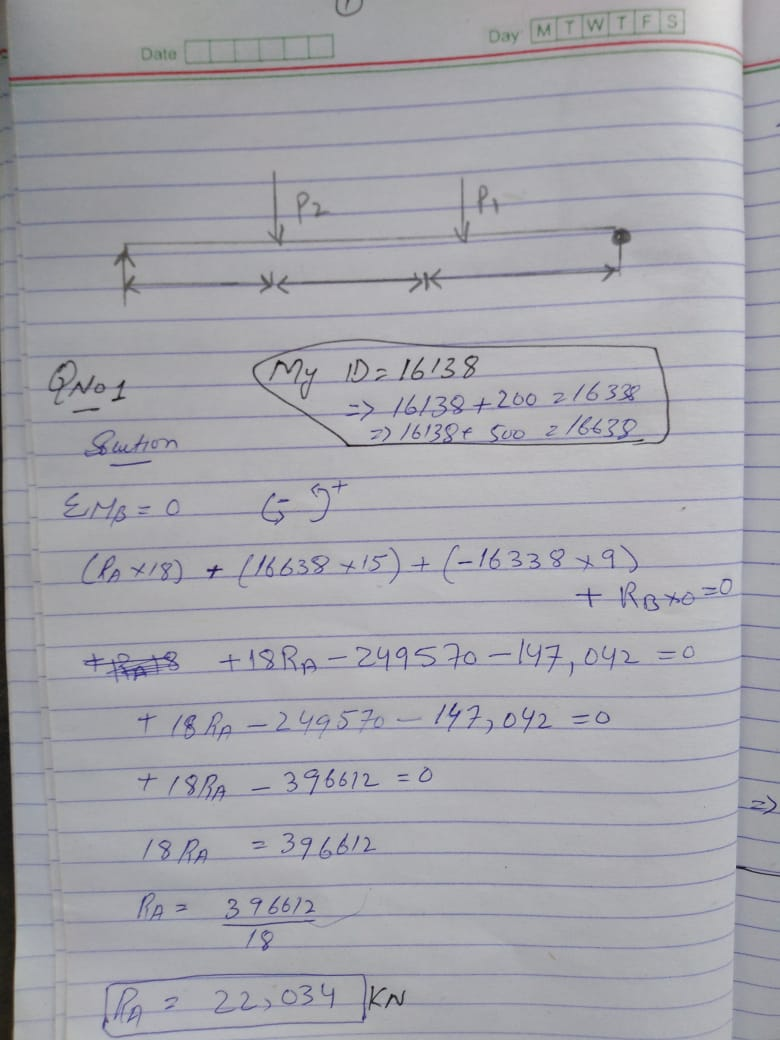 1
Date
Day M T W T F S
P2
P1
Q No 1
My ID = 16138
=> 16138 + 200 = 16338
=> 16138 + 500 = 16638
Solution
ΣMB = 0 +
(RA × 18) + (16638 × 15) + (-16338 × 9)
+ RB × 0 = 0
+18RA - 249570 - 147,042 = 0
+ 18RA - 249570 - 147,042 = 0
+ 18RA - 396612 = 0
18RA = 396612
RA = 396612
18
RA = 22,034 KN
=>